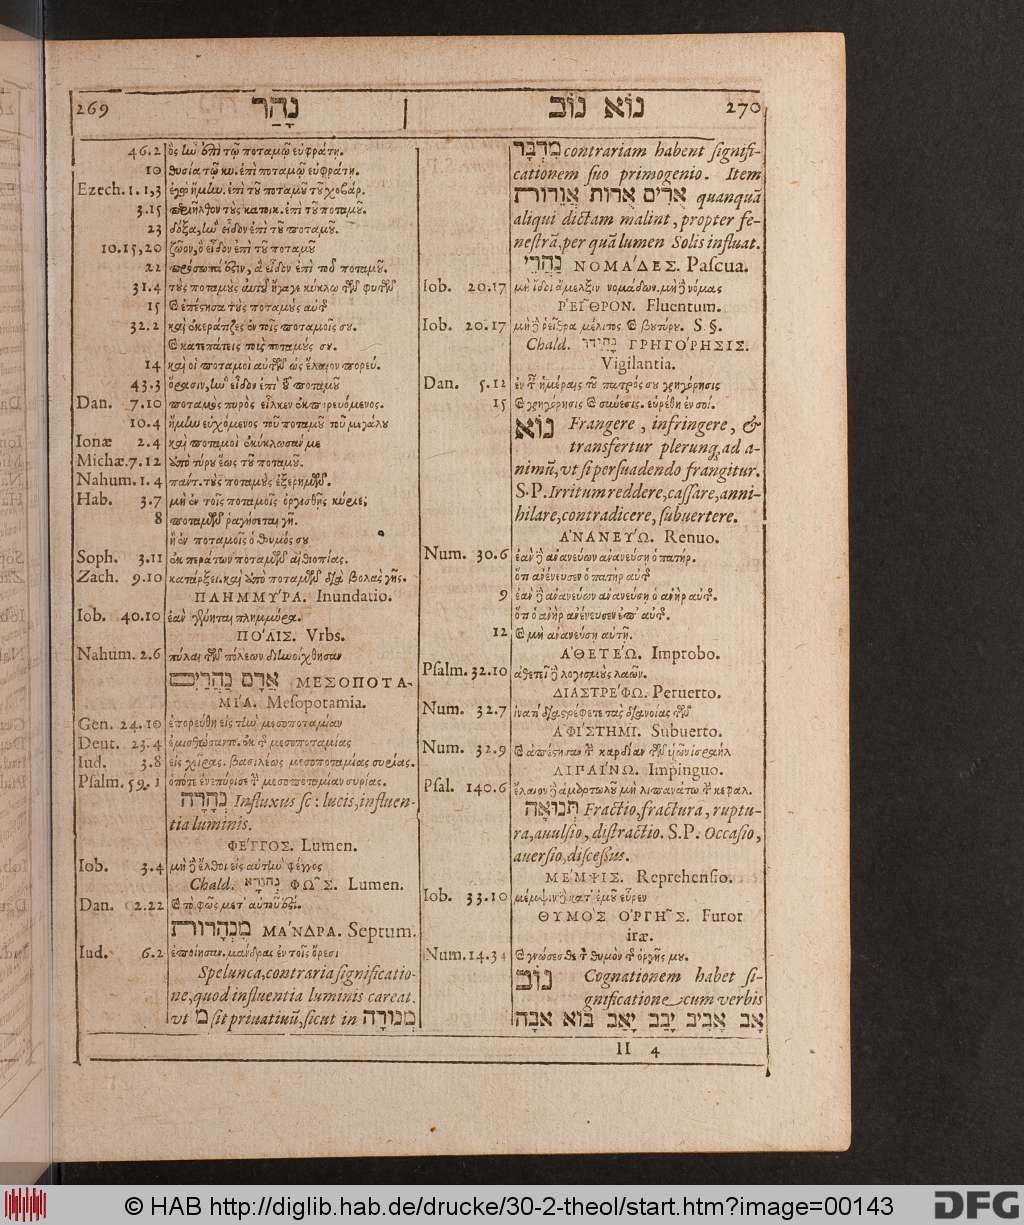 269 נָהַר
46.2 ὃς ἦν ἐπὶ τῷ ποταμῷ εὐφράτῃ.
10 θυσία τῷ κυ. ἐπὶ ποταμῷ εὐφράτῃ.
Ezech. 1. 1,3 ἐγὼ ἤμην. ἐπὶ τοῦ ποταμοῦ τοῦ χοβάρ.
3.15 τοὺς κατοικ. ἐπὶ τοῦ ποταμοῦ.
23 δόξα, ἣν εἶδον ἐπὶ τοῦ ποταμοῦ.
10.15,20 ζῶον, ὃ εἶδον ἐπὶ τοῦ ποταμοῦ
22 εἶδον ἐπὶ τοῦ ποταμοῦ.
31.4 τοὺς ποταμοὺς αὐτοῦ ἤγαγε κύκλῳ τῶν φυτῶν
15 καὶ ἐπέστησα τοὺς ποταμοὺς αὐτῆς
32.2 καὶ ἐκεράτιζες ἐν τοῖς ποταμοῖς σου.
καὶ κατεπάτεις τοὺς ποταμούς σου.
14 καὶ οἱ ποταμοὶ αὐτῶν ὡς ἔλαιον πορεύ.
43.3 ὅρασιν, ἣν εἶδον ἐπὶ τοῦ ποταμοῦ
Dan. 7.10 ποταμὸς πυρὸς εἷλκεν ἐκπορευόμενος.
10.4 ἤμην εὐχόμενος τοῦ ποταμοῦ τοῦ μεγάλου
Ionæ 2.4 καὶ ποταμοὶ ἐκύκλωσάν με
Michæ. 7.12 ἀπὸ τύρου ἕως τοῦ ποταμοῦ.
Nahum. 1.4 πάντ. τοὺς ποταμοὺς ἐξερημῶν.
Hab. 3.7 μὴ ἐν τοῖς ποταμοῖς ὀργισθῇς κύριε;
8 ποταμῶν ῥαγήσεται γῆ.
ἢ ἐν ποταμοῖς ὁ θυμός σου
Soph. 3.11 ἐκ περάτων ποταμῶν αἰθιοπίας.
Zach. 9.10 κατάρξει. καὶ ἀπὸ ποταμῶν διεκβολὰς γῆς.
ΠΛΗΜΜΎΡΑ. Inundatio.
Iob. 40.10 ἐὰν γένηται πλημμύρα.
ΠΌΛΙΣ. Vrbs.
Nahum. 2.6 πύλαι τῶν πόλεων διηνοίχθησαν
אֲרָם נַהֲרַיִם ΜΕΣΟΠΟΤΑ-
ΜΊΑ. Mesopotamia.
Gen. 24.10 ἐπορεύθη εἰς τὴν μεσοποταμίαν
Deut. 23.4 ἐμισθώσαντο. ἐκ τῆς μεσοποταμίας
Iud. 3.8 εἰς χεῖρας. βασιλέως μεσοποταμίας συρίας.
Psalm. 59.1 ὁπότε ἐνεπύρισε τὴν μεσοποταμίαν συρίας.
נְהָרָה Influxus sc: lucis, influen-
tia luminis.
ΦΈΓΓΟΣ. Lumen.
Iob. 3.4 μὴ δὲ ἔλθοι εἰς αὐτὴν φέγγος
Chald. נְהוֹרָא ΦΩ͂Σ. Lumen.
Dan. 2.22 καὶ τὸ φῶς μετ' αὐτοῦ ἐστί.
מִנְהָרוֹת ΜΆΝΔΡΑ. Septum.
Iud. 6.2 ἐποίησαν. μάνδραι ἐν τοῖς ὄρεσι
Spelunca, contraria significatio-
ne, quod influentia luminis careat.
vt מ sit priuatiuũ, sicut in מְנוּרָה
נוֹא נוּב 270
מִדְבָּר contrariam habent signifi-
cationem suo primogenio. Item
אֻרִים אֻרוֹת אֲוֵרוֹת quanquã
aliqui dictam malint, propter fe-
nestrã, per quã lumen Solis influat.
נַהֲרֵי ΝΟΜΆΔΕΣ. Pascua.
Iob. 20.17 μὴ ἴδοι ἄμελξιν νομάδων. μὴ δὲ νόμας
ῬΕΙ͂ΘΡΟΝ. Fluentum.
Iob. 20.17 μὴ δὲ ῥεῖθρα μέλιτος καὶ βουτύρου. S.§.
Chald. נָהִירוּ ΓΡΗΓΌΡΗΣΙΣ.
Vigilantia.
Dan. 5.12 ἐν ταῖς ἡμέραις τοῦ πατρός σου γρηγόρησις
15 καὶ γρηγόρησις καὶ σύνεσις. εὑρέθη ἐν σοί.
נוֹא Frangere, infringere, &
transfertur plerunq; ad a-
nimũ, vt si persuadendo frangitur.
S.P. Irritum reddere, cassare, anni-
hilare, contradicere, subuertere.
ἈΝΑΝΕΎΩ. Renuo.
Num. 30.6 ἐὰν δὲ ἀνανεύων ἀνανεύσῃ ὁ πατήρ.
ὅτι ἀνένευσεν ὁ πατὴρ αὐτῆς
9 ἐὰν δὲ ἀνανεύων ἀνανεύσῃ ὁ ἀνὴρ αὐτῆς.
ὅτι ὁ ἀνὴρ ἀνένευσεν ἀπ' αὐτῆς.
12 καὶ μὴ ἀνανεύσῃ αὐτῇ.
ἈΘΕΤΈΩ. Improbo.
Psalm. 32.10 ἀθετεῖ δὲ λογισμοὺς λαῶν.
ΔΙΑΣΤΡΈΦΩ. Peruerto.
Num. 32.7 ἱνατί διαστρέφετε τὰς διανοίας τῶν
ἈΦΊΣΤΗΜΙ. Subuerto.
Num. 32.9 καὶ ἀπέστησαν τὴν καρδίαν τῶν υἱῶν ἰσραήλ
ΛΙΠΑΊΝΩ. Impinguo.
Psal. 140.6 ἔλαιον δὲ ἁμαρτωλοῦ μὴ λιπανάτω τὴν κεφαλ.
תְּנוּאָה Fractio, fractura, ruptu-
ra, auulsio, distractio. S.P. Occasio,
auersio, discessus.
ΜΈΜΨΙΣ. Reprehensio.
Iob. 33.10 μέμψιν δὲ κατ' ἐμοῦ εὗρεν
ΘΥΜῸΣ ὈΡΓΗ͂Σ. Furor
iræ.
Num. 14.34 καὶ γνώσεσθε τὸν θυμὸν τῆς ὀργῆς μου.
נוּב Cognationem habet si-
gnificatione cum verbis
אָב אָבִיב יָבַב יָאַב בּוֹא אבה
II 4
© HAB http://diglib.hab.de/drucke/30-2-theol/start.htm?image=00143
DFG